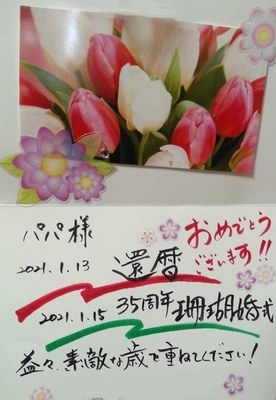 パパ様
おめでとう
ございます!!
2021.1.13 還暦
2021.1.15 35周年 珊瑚婚式
益々、素敵な歳で重ねてください!